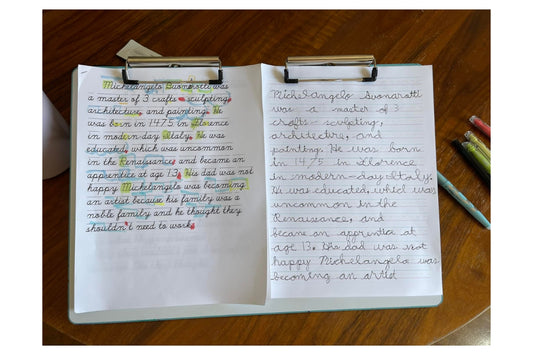 Michelangelo Buonarotti was
a master of 3 crafts - sculpting,
architecture, and painting. He
was born in 1475 in Florence
in modern-day Italy. He was
educated, which was uncommon
in the Renaissance, and became an
apprentice at age 13. His dad was not
happy Michelangelo was becoming
an artist because his family was a
noble family and he thought they
shouldn't need to work.
Michelangelo Buonarotti
was a master of 3
crafts - sculpting,
architecture, and
painting. He was born
in 1475 in Florence
in modern-day Italy.
He was educated, which was
uncommon in the
Renaissance, and
became an apprentice at
age 13. His dad was not
happy Michelangelo was
becoming an artist